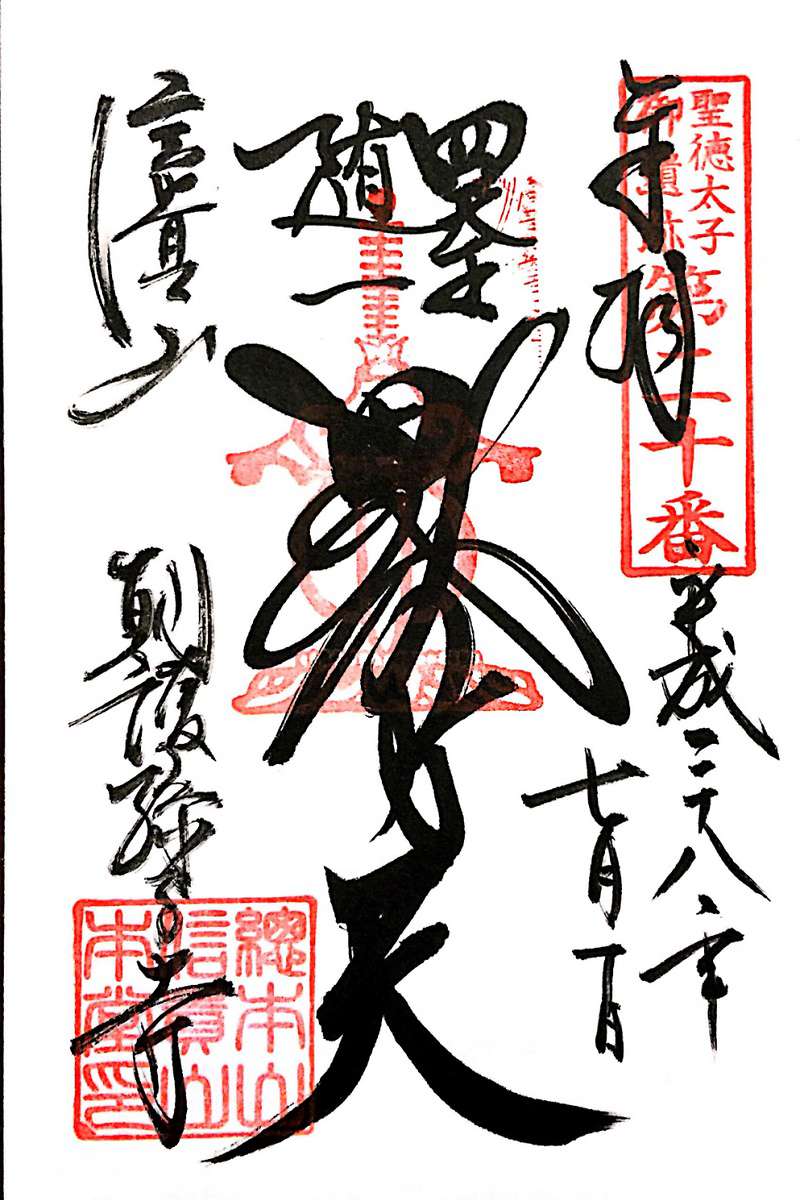 聖徳太子
御遺跡
第二十番
奉拝
平成二十八年
七月一日
四天王
随一
毘沙門天
信貴山
朝護孫子寺
總本山
信貴山
本堂印